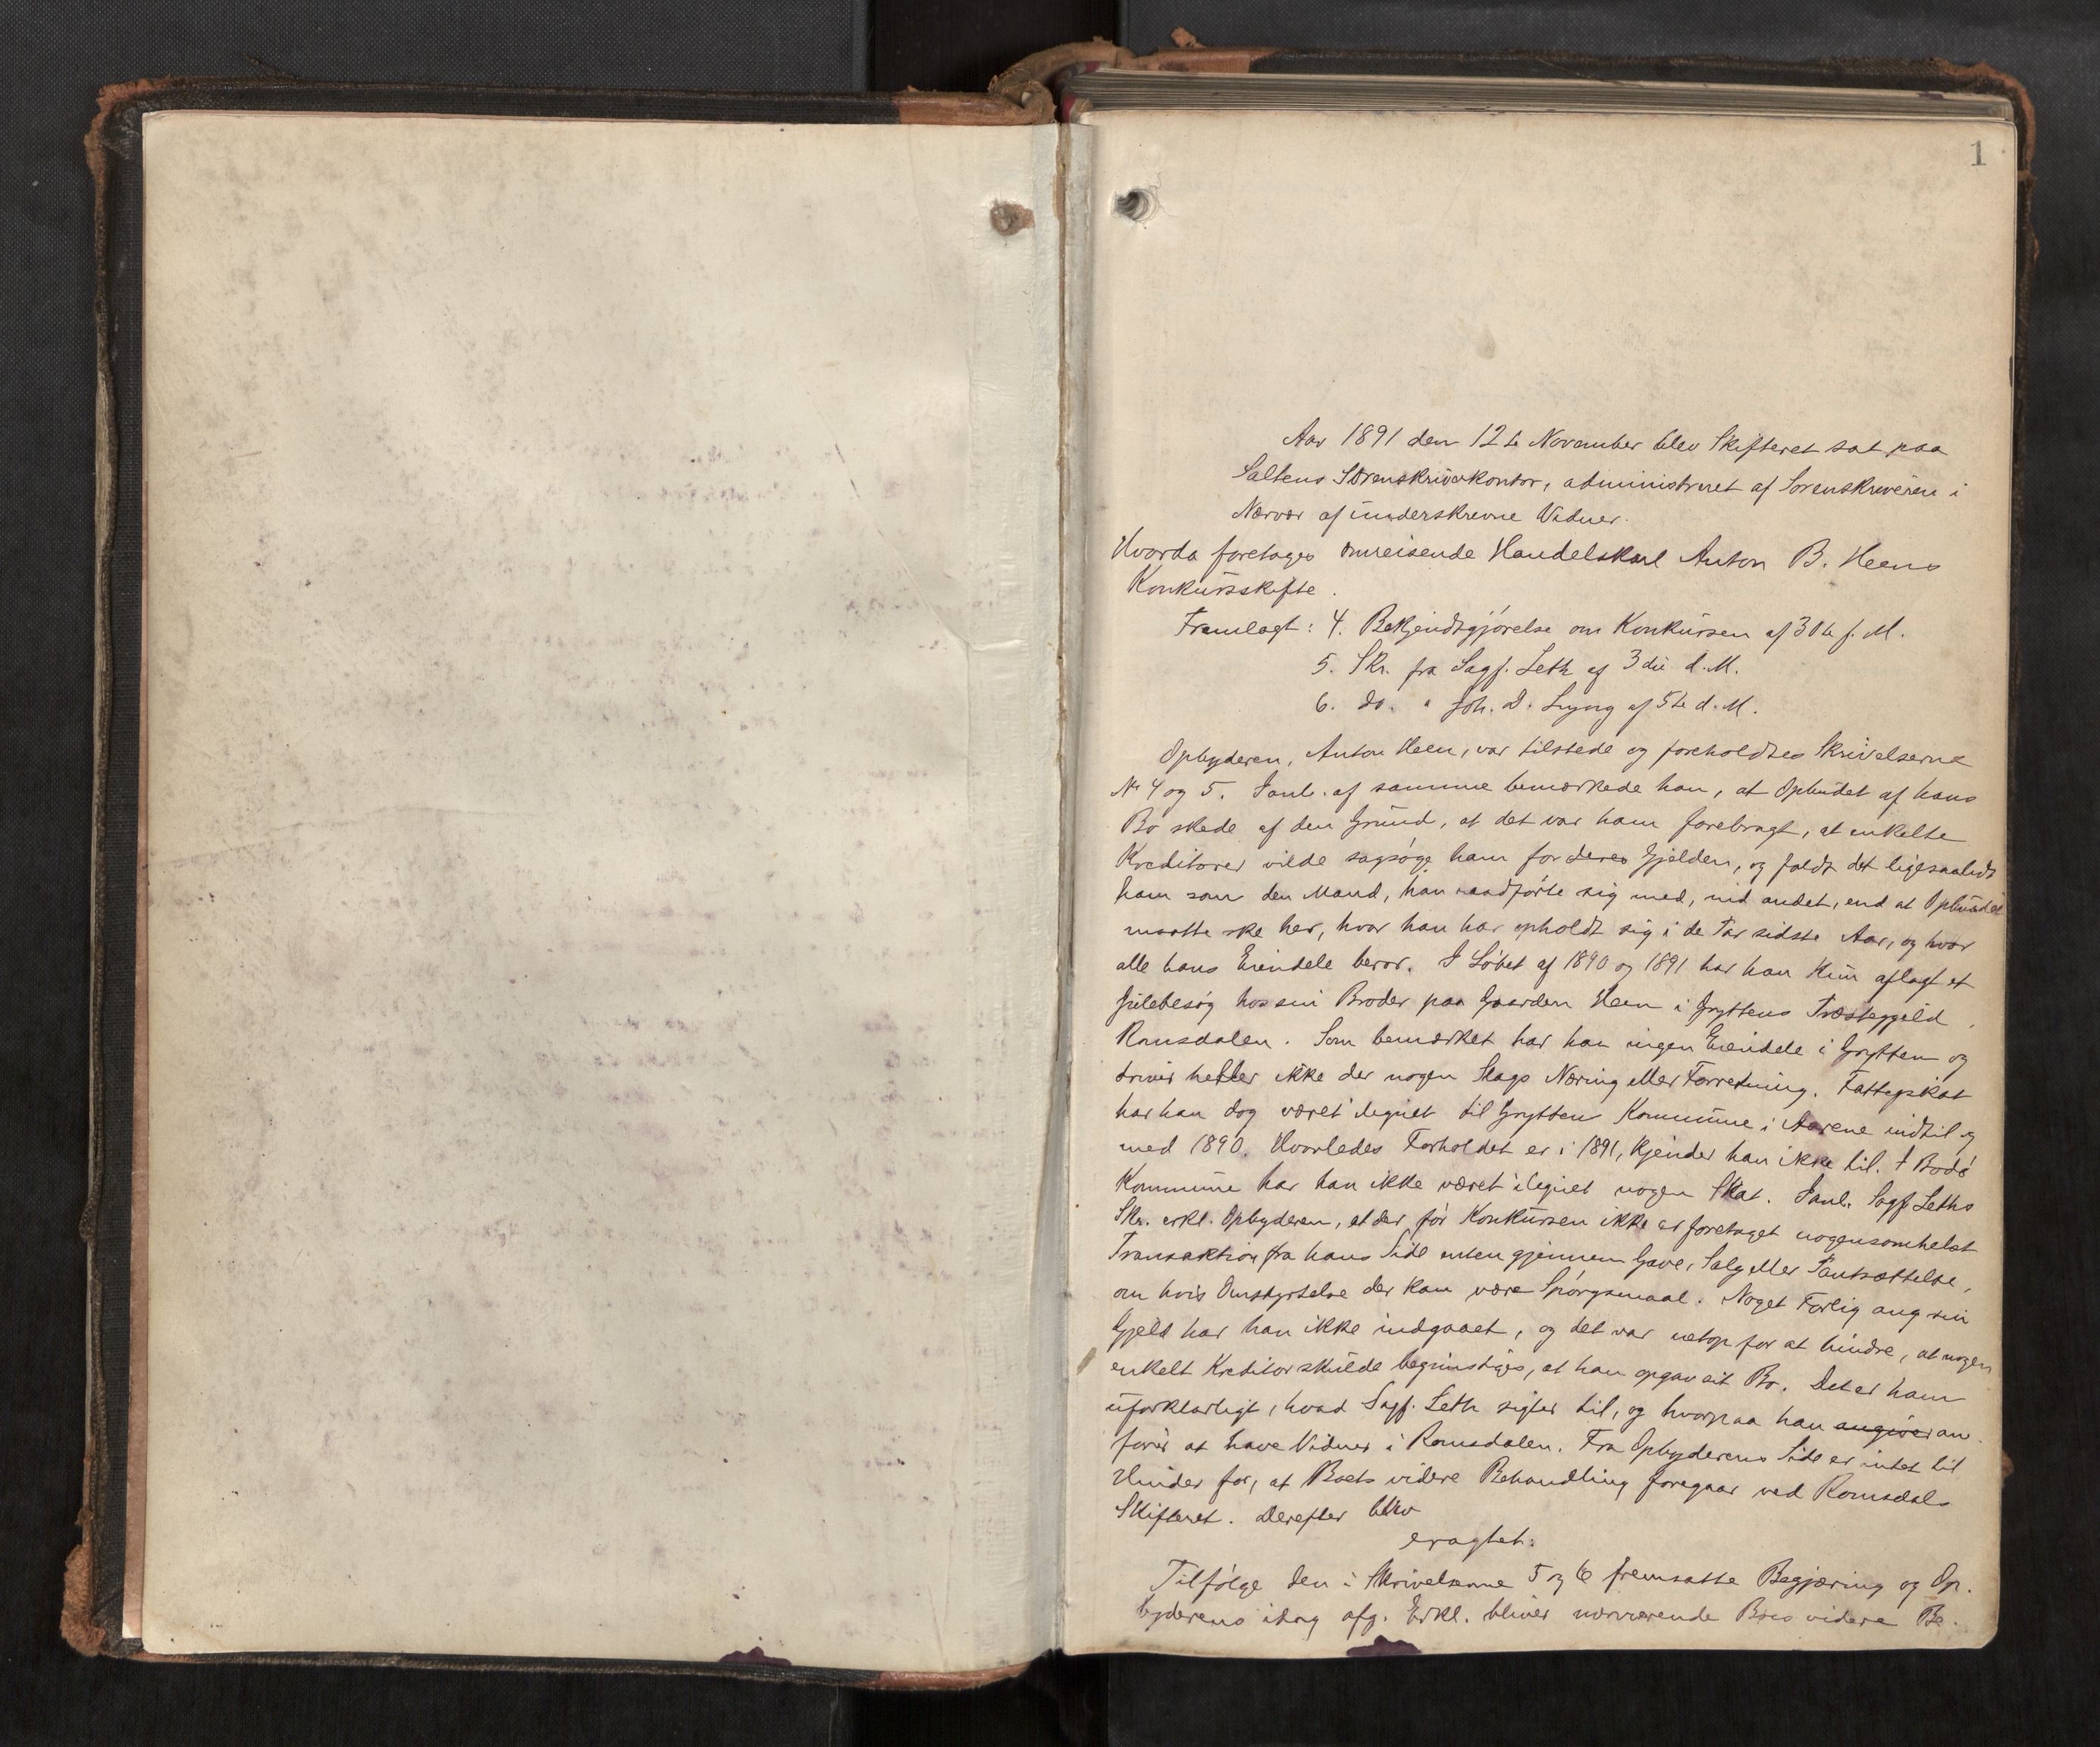 1
Aar 1891 den 12te November blev Skifteret sat paa
Saltens Sorenskriverkontor, administreret af Sorenskriveren i
Nærvær af underskrevne Vidner.
Hvorda foretages omreisende Handelskarl Anton B. Heens
Konkursskifte.
Fremlagt: 4. Bekjendtgjørelse om Konkursen af 30te f. M.
5. Skr. fra Sagf. Leth af 3die d. M.
6. do. " Joh. D. af 5te d. M.
Opbyderen, Anton Heen, var tilstede og foreholdtes Skrivelserne
No 4 og 5. I anl. af samme bemærkede han, at Opbudet af hans
Bo skede af den Grund, at det var ham forebragt, at enkelte
Kreditorer vilde sagsøge ham for deres Gjelden, og faldt det ligesaalidt
ham som den Mand, han raadførte sig med, ind andet, end at Opbudet
maatte ske her, hvor han har opholdt sig i de sidste Aar, og hvor
alle hans Eiendele beror. I Løbet af 1890 og 1891 har han kun aflagt et
Julebesøg hos sin Broder paa Gaarden Heen i Gryttens Præstegjeld,
Romsdalen. Som bemærket har han ingen Eiendele i Grytten og
driver heller ikke der nogen Slags Næring eller Forretning. Fattigskat
har han dog været ilignet til Grytten Kommune i Aarene indtil og
med 1890. Hvorledes Forholdet er i 1891, kjender han ikke til. I Bodø
Kommune har han ikke været ilignet nogen Skat. I anl. Sagf. Leths
Skr. erkl. Opbyderen, at der før Konkursen ikke er foretaget nogensomhelst
Transaktion fra hans Side enten gjennem Gave, Salg eller Pantsættelse,
om hvis Omstyrtelse der kan være Spørgsmaal. Noget Forlig ang sin
Gjeld har han ikke indgaaet, og det var netop for at hindre, at nogen
enkelt Kreditor skulde begunstiges, at han opgav sit Bo. Det er ham
uforklarligt, hvad Sagf. Leth sigter til, og hvorpaa han angiver an
fører at have Vidner i Romsdalen. Fra Opbyderens Side er intet til
Hinder for, at Boets videre Behandling foregaar ved Romsdals
Skifteret. Derefter blev
eragtet:
Tilfølge den i Skrivelserne 5 og 6 fremsatte Begjæring og Op-
byderens idag afg. Erkl. bliver nærværende Boes videre Be-